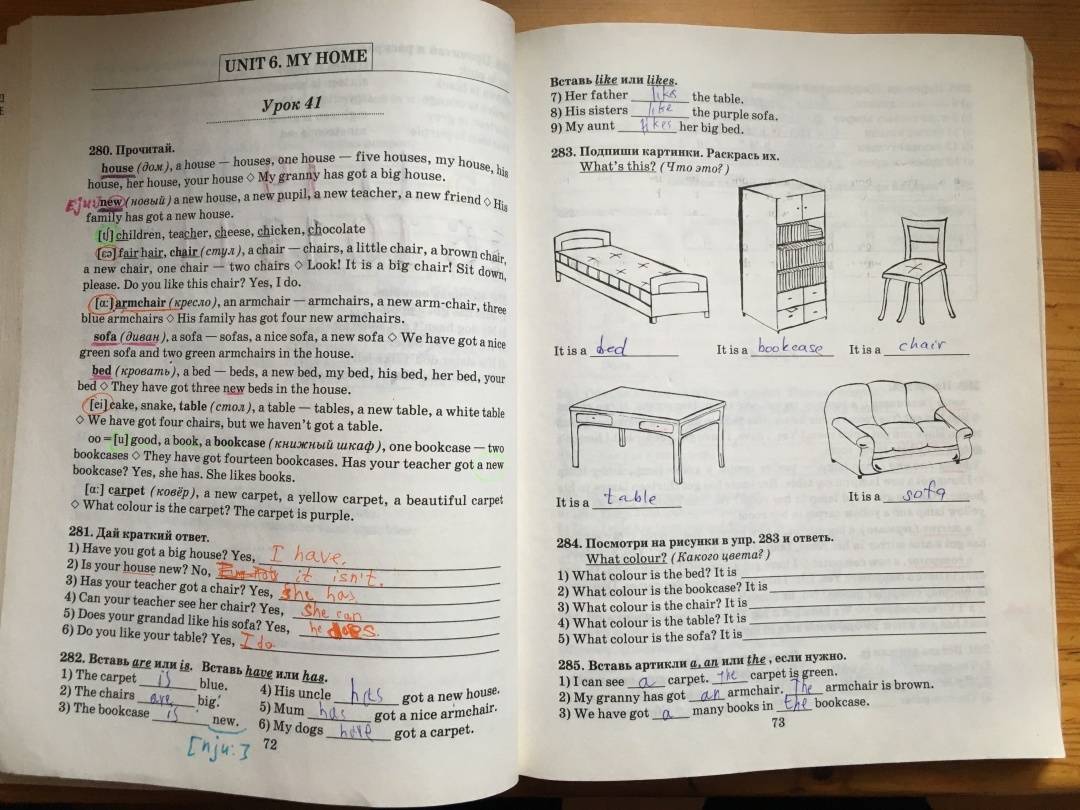 UNIT 6. MY HOME
Урок 41
280. Прочитай.
house (дом), a house — houses, one house — five houses, my house, his
house, her house, your house ◇ My granny has got a big house.
new (новый) a new house, a new pupil, a new teacher, a new friend ◇ His
family has got a new house.
[tʃ] children, teacher, cheese, chicken, chocolate
[εə] fair hair, chair (стул), a chair — chairs, a little chair, a brown chair,
a new chair, one chair — two chairs ◇ Look! It is a big chair! Sit down,
please. Do you like this chair? Yes, I do.
[ɑ:] armchair (кресло), an armchair — armchairs, a new arm-chair, three
blue armchairs ◇ His family has got four new armchairs.
sofa (диван), a sofa — sofas, a nice sofa, a new sofa ◇ We have got a nice
green sofa and two green armchairs in the house.
bed (кровать), a bed — beds, a new bed, my bed, his bed, her bed, your
bed ◇ They have got three new beds in the house.
[ei] cake, snake, table (стол), a table — tables, a new table, a white table
◇ We have got four chairs, but we haven't got a table.
oo = [u] good, a book, a bookcase (книжный шкаф), one bookcase — two
bookcases ◇ They have got fourteen bookcases. Has your teacher got a new
bookcase? Yes, she has. She likes books.
[ɑ:] carpet (ковёр), a new carpet, a yellow carpet, a beautiful carpet
◇ What colour is the carpet? The carpet is purple.
281. Дай краткий ответ.
1) Have you got a big house? Yes, I have.
2) Is your house new? No, it isn't.
3) Has your teacher got a chair? Yes, she has
4) Can your teacher see her chair? Yes, she can
5) Does your grandad like his sofa? Yes, he does.
6) Do you like your table? Yes, I do.
282. Вставь are или is. Вставь have или has.
1) The carpet is blue.
2) The chairs are big.
3) The bookcase is new.
[nju:]
4) His uncle has got a new house.
5) Mum has got a nice armchair.
6) My dogs have got a carpet.
72
Вставь like или likes.
7) Her father likes the table.
8) His sisters like the purple sofa.
9) My aunt likes her big bed.
283. Подпиши картинки. Раскрась их.
What's this? (Что это?)
It is a bed
It is a bookcase
It is a chair
It is a table
It is a sofa
284. Посмотри на рисунки в упр. 283 и ответь.
What colour? (Какого цвета?)
1) What colour is the bed? It is
2) What colour is the bookcase? It is
3) What colour is the chair? It is
4) What colour is the table? It is
5) What colour is the sofa? It is
285. Вставь артикли a, an или the, если нужно.
1) I can see a carpet. the carpet is green.
2) My granny has got an armchair. The armchair is brown.
3) We have got a many books in the bookcase.
73